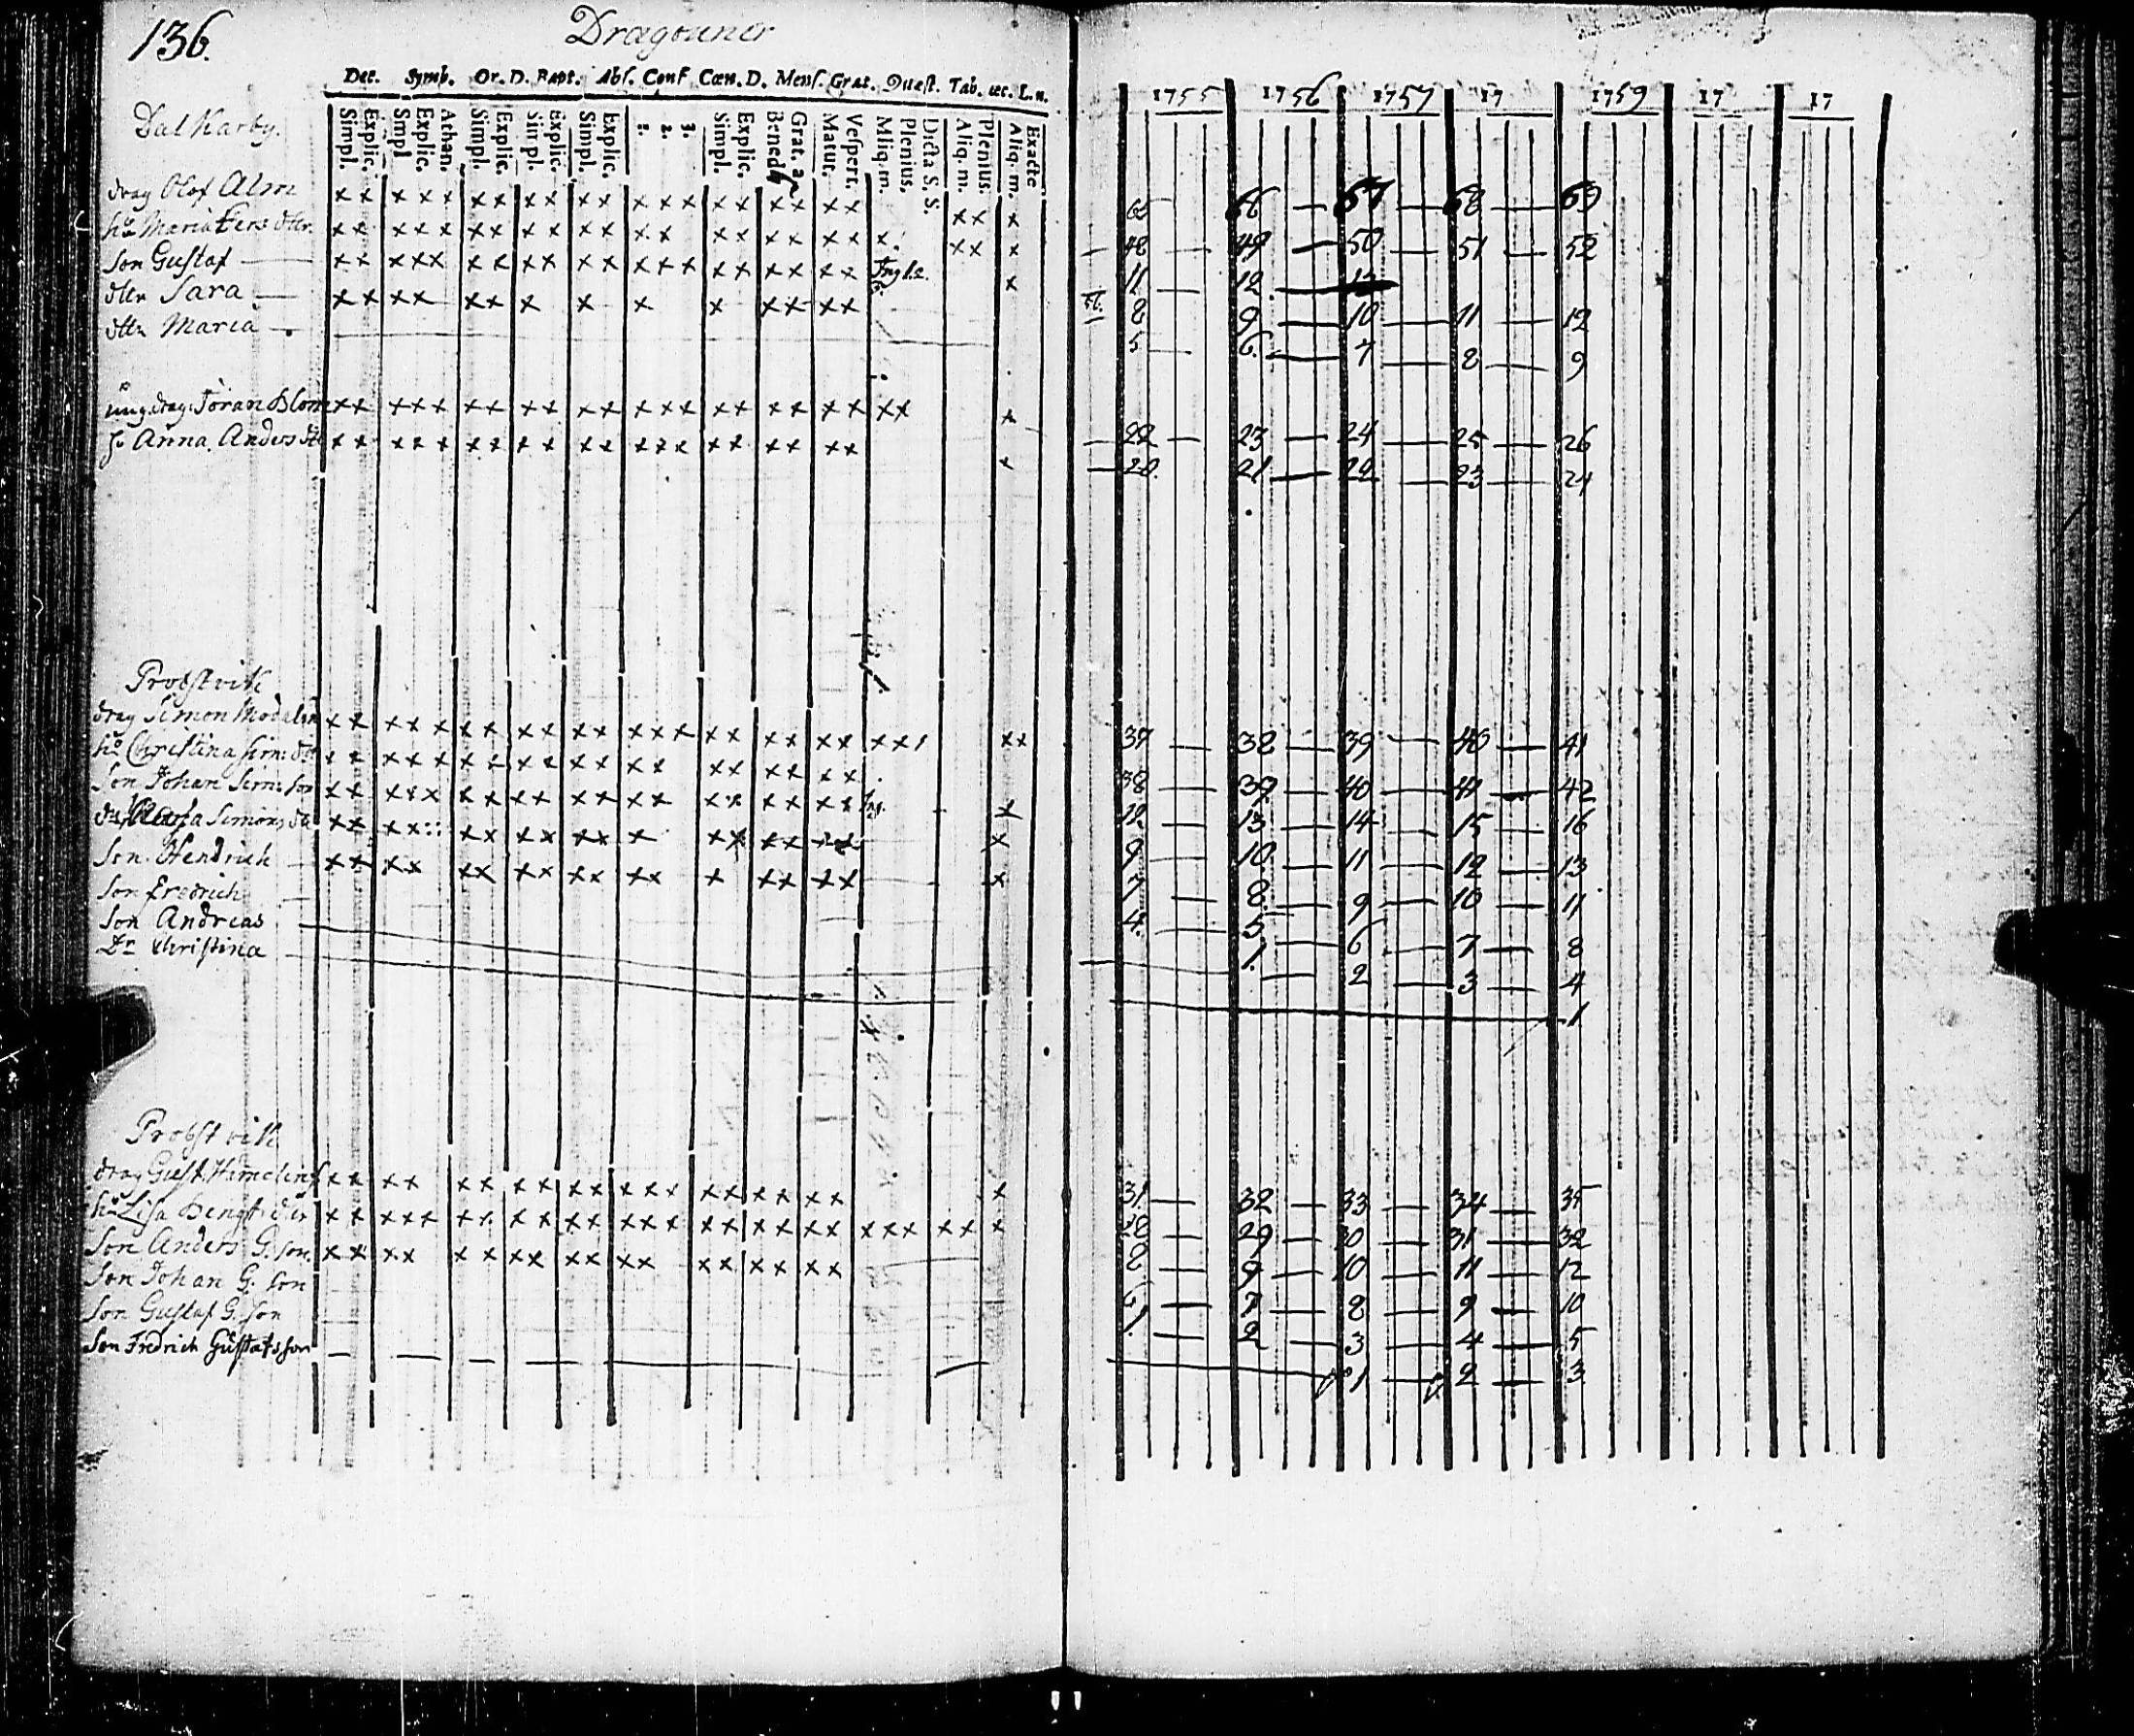 136.
Dragouner
Dec. Symb. Or. D. Bapt. Abs. Conf Cœn. D. Mens. Grat. Quæst. Tab. œc. L. n.
Simpl. Explic. Simpl Explic. Athan. Simpl. Explic. Simpl. Explic. Simpl. Explic. 1. 2. 3. Simpl. Explic. Bened. Grat. a. Matut. Vespert. Aliq. m. Plenius. Dicta S. S. Aliq. m. Plenius. Aliq. m. Exacte
1755 1756 1757 17 1759 17 17
Dal Karby.
drag Olof Alm 66 67 68 69
hu Maria Ders dttr 48 49 50 51 52
Son Gustaf 11 12
dttr Sara 8 9 10 11 12
dttr Maria 5 6 7 8 9
ung drag: Jöran Blom 22 23 24 25 26
h Anna Anders 20 21 22 23 24
Probstvik
drag Simon Modalin 37 38 39 40 41
hu Christina Sim: 38 39 40 41 42
Son Johan Sims: son 12 13 14 15 16
Simons 9 10 11 12 13
Son Hendrich 7 8 9 10 11
Son Fredrich 4 5 6 7 8
Son Andreas 1 2 3 4
Dr Christina 1
Probst vik
drag Gust. 31 32 33 34 35
hu Lisa Bengts dtr 28 29 30 31 32
Son Anders G. son. 8 9 10 11 12
Son Johan G. son 6 7 8 9 10
Son Gustaf G. son 1 2 3 4 5
Son Fredrich Gustafsson 1 2 3